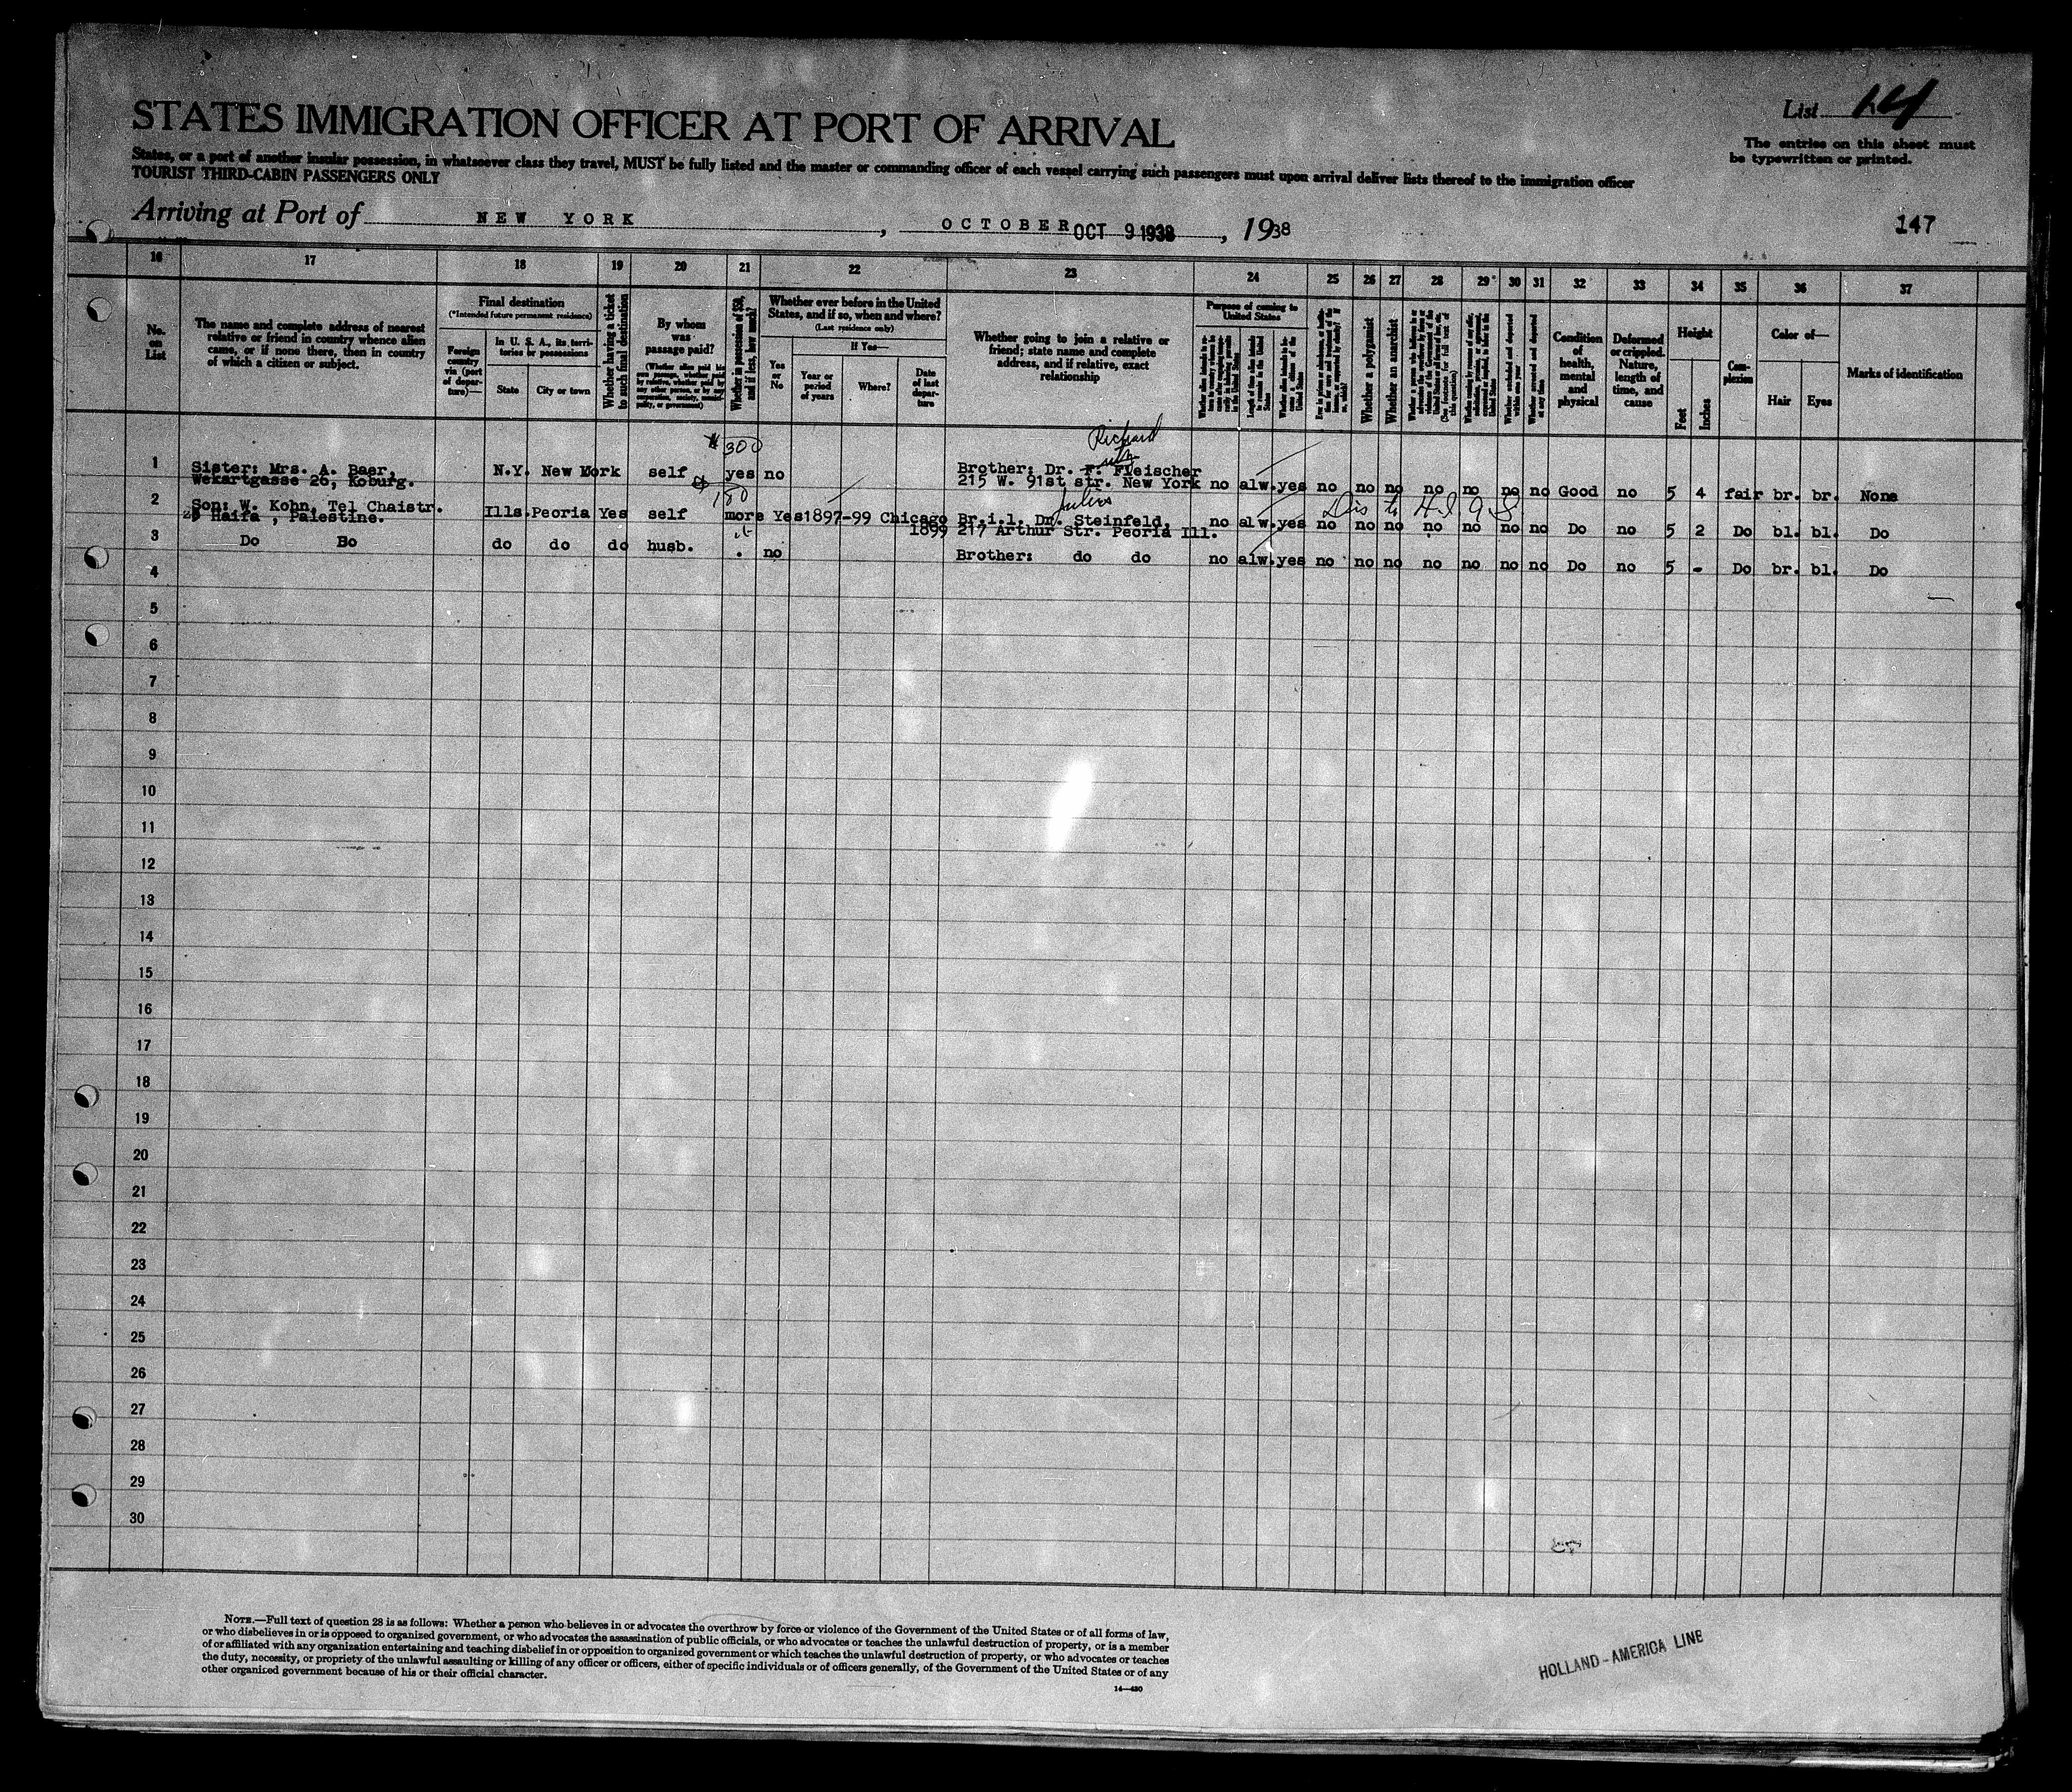 STATES IMMIGRATION OFFICER AT PORT OF ARRIVAL
List 14
The entries on this sheet must
be typewritten or printed.
States, or a port of another insular possession, in whatsoever class they travel, MUST be fully listed and the master or commanding officer of each vessel carrying such passengers must upon arrival deliver lists thereof to the immigration officer
TOURIST THIRD-CABIN PASSENGERS ONLY
Arriving at Port of NEW YORK, OCTOBER OCT 9 1938, 1938
147
16 17 18 19 20 21 22 23 24 25 26 27 28 29 30 31 32 33 34 35 36 37
No.
on
List
The name and complete address of nearest
relative or friend in country whence alien
came, or if none there, then in country
of which a citizen or subject.
Final destination
(*Intended future permanent residence)
Foreign
country
via (port
of depar-
ture)—
In U. S. A., its terri-
tories or possessions
State
City or town
Whether having a ticket
to such final destination
By whom
was
passage paid?
(Whether alien paid his
own passage, whether paid
by relative, whether paid by
any other person, or by any
corporation, society, munici-
pality, or government)
Whether in possession of $50,
and if less, how much?
Whether ever before in the United
States, and if so, when and where?
(Last residence only)
Yes
or
No
If Yes—
Year or
period
of years
Where?
Date
of last
depar-
ture
Whether going to join a relative or
friend; state name and complete
address, and if relative, exact
relationship
Purpose of coming to
United States
Whether a polygamist
Whether an anarchist
Condition
of
health,
mental
and
physical
Deformed
or crippled.
Nature,
length of
time, and
cause
Height
Feet
Inches
Com-
plexion
Color of—
Hair
Eyes
Marks of identification
$300
Richard
1 Sister: Mrs. A. Baer, N.Y. New York self yes no Brother: Dr. F. Fleischer
Wekartgasse 26, Koburg. 215 W. 91st str. New York no alw. yes no no no no no no no Good no 5 4 fair br. br. None
$ 180
Julius
Dis to H I A S
2 Son: W. Kohn, Tel Chaistr. Ills. Peoria Yes self more Yes 1897-99 Chicago Br.i.l. Dr. Steinfeld,
Haifa , Palestine. 1899 217 Arthur Str. Peoria Ill. no alw. yes no no no no no no no Do no 5 2 Do bl. bl. Do
3 Do Do do do do husb. no Brother: do do no alw. yes no no no no no no no Do no 5 - Do br. bl. Do
4
5
6
7
8
9
10
11
12
13
14
15
16
17
18
19
20
21
22
23
24
25
26
27
28
29
30
NOTE.—Full text of question 28 is as follows: Whether a person who believes in or advocates the overthrow by force or violence of the Government of the United States or of all forms of law,
or who disbelieves in or is opposed to organized government, or who advocates the assassination of public officials, or who advocates or teaches the unlawful destruction of property, or is a member
of or affiliated with any organization entertaining and teaching disbelief in or opposition to organized government or which teaches the unlawful destruction of property, or who advocates or teaches
the duty, necessity, or propriety of the unlawful assaulting or killing of any officer or officers, either of specific individuals or of officers generally, of the Government of the United States or of any
other organized government because of his or their official character.
14—430
HOLLAND-AMERICA LINE